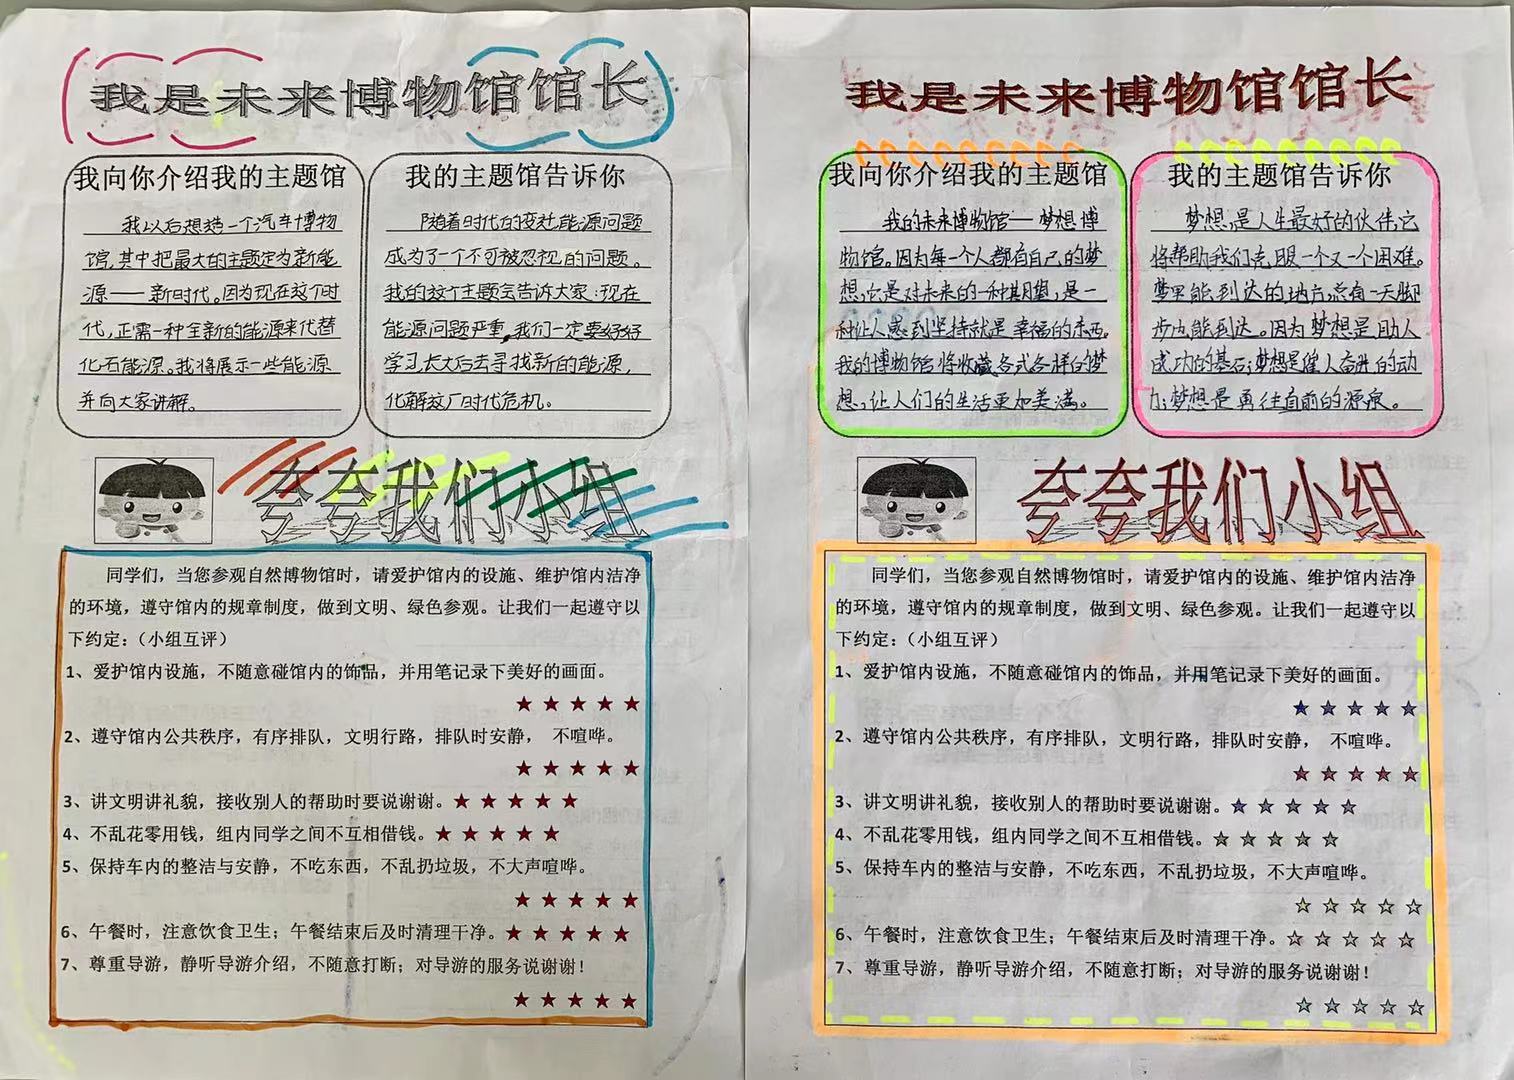 我是未来博物馆馆长
我向你介绍我的主题馆
我以后想造一个汽车博物
馆,其中把最大的主题定为新能
源——新时代。因为现在这个时
代,正需一种全新的能源来代替
化石能源。我将展示一些能源
并向大家讲解。
我的主题馆告诉你
随着时代的变迁,能源问题
成为了一个不可被忽视的问题。
我的这个主题会告诉大家:现在
能源问题严重,我们一定要好好
学习,长大后去寻找新的能源,
化解这厂时代危机。
夸夸我们小组
同学们，当您参观自然博物馆时，请爱护馆内的设施、维护馆内洁净
的环境，遵守馆内的规章制度，做到文明、绿色参观。让我们一起遵守以
下约定：（小组互评）
1、爱护馆内设施，不随意碰馆内的饰品，并用笔记录下美好的画面。
★★★★★
2、遵守馆内公共秩序，有序排队，文明行路，排队时安静， 不喧哗。
★★★★★
3、讲文明讲礼貌，接收别人的帮助时要说谢谢。★★★★★
4、不乱花零用钱，组内同学之间不互相借钱。★★★★★
5、保持车内的整洁与安静，不吃东西，不乱扔垃圾，不大声喧哗。
★★★★★
6、午餐时，注意饮食卫生；午餐结束后及时清理干净。★★★★★
7、尊重导游，静听导游介绍，不随意打断；对导游的服务说谢谢！
★★★★★
我是未来博物馆馆长
我向你介绍我的主题馆
我的未来博物馆——梦想博
物馆。因为每一个人都有自己的梦
想,它是对未来的一种期望,是一
种让人感到坚持就是幸福的东西。
我的博物馆将收藏各式各样的梦
想,让人们的生活更加美满。
我的主题馆告诉你
梦想,是人生最好的伙伴,它
将帮助我们克服一个又一个困难。
梦里能到达的地方,总有一天脚
步也能到达。因为梦想是助人
成功的基石;梦想是催人奋进的动
力;梦想是勇往直前的源泉。
夸夸我们小组
同学们，当您参观自然博物馆时，请爱护馆内的设施、维护馆内洁净
的环境，遵守馆内的规章制度，做到文明、绿色参观。让我们一起遵守以
下约定：（小组互评）
1、爱护馆内设施，不随意碰馆内的饰品，并用笔记录下美好的画面。
★★★★★
2、遵守馆内公共秩序，有序排队，文明行路，排队时安静， 不喧哗。
★★★★★
3、讲文明讲礼貌，接收别人的帮助时要说谢谢。★★★★★
4、不乱花零用钱，组内同学之间不互相借钱。☆☆☆☆☆
5、保持车内的整洁与安静，不吃东西，不乱扔垃圾，不大声喧哗。
☆☆☆☆☆
6、午餐时，注意饮食卫生；午餐结束后及时清理干净。☆☆☆☆☆
7、尊重导游，静听导游介绍，不随意打断；对导游的服务说谢谢！
☆☆☆☆☆